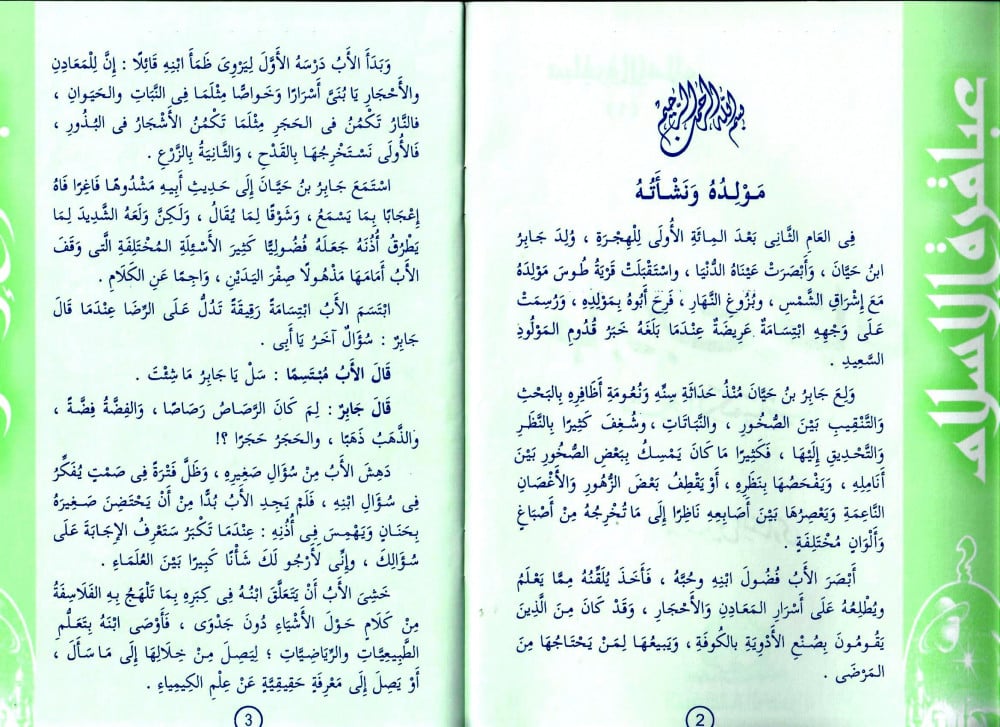 بسم الله الرحمن الرحيم
مَوْلِدُهُ وَنَشْأَتُهُ
فِى العَامِ الثَّانِى بَعْدَ المِائَةِ الأُولَى لِلْهِجْرَةِ ، وُلِدَ جَابِرُ
ابنُ حَيَّانَ ، وَأَبْصَرَتْ عَيْنَاهُ الدُّنْيَا ، واسْتَقْبَلَتْ قَرْيَةُ طُوسَ مَوْلِدَهُ
مَعَ إِشْرَاقِ الشَّمْسِ ، وبُزُوغِ النَّهَارِ ، فَرِحَ أَبُوهُ بِمَوْلِدِهِ ، وَرُسِمَتْ
عَلَى وَجْهِهِ ابْتِسَامَةٌ عَرِيضَةٌ عِنْدَمَا بَلَغَهُ خَبَرُ قُدُومِ المَوْلُودِ
السَّعِيدِ .
وَلِعَ جَابِرُ بنُ حَيَّانَ مُنْذُ حَدَاثَةِ سِنِّهِ وَنُعُومَةِ أَظَافِرِهِ بِالبَحْثِ
وَالتَّنْقِيبِ بَيْنَ الصُّخُورِ ، والنَّبَاتَاتِ ، وشُغِفَ كَثِيرًا بِالنَّظَرِ
وَالتَّحْدِيقِ إِلَيْهَا ، فَكَثِيرًا مَا كَانَ يَمْسِكُ بِبَعْضِ الصُّخُورِ بَيْنَ
أَنَامِلِهِ ، وَيَفْحَصُهَا بِنَظَرِهِ ، أَوْ يَقْطِفُ بَعْضَ الزُّهُورِ وَالأَغْصَانِ
النَّاعِمَةِ وَيَعْصِرُهَا بَيْنَ أَصَابِعِهِ نَاظِرًا إِلَى مَا تُخْرِجُهُ مِنْ أَصْبَاغٍ
وَأَلْوَانٍ مُخْتَلِفَةٍ .
أَبْصَرَ الأَبُ فُضُولَ ابْنِهِ وحُبَّهُ ، فَأَخَذَ يُلَقِّنُهُ مِمَّا يَعْلَمُ
ويُطْلِعُهُ عَلَى أَسْرَارِ المَعَادِنِ وَالأَحْجَارِ ، وَقَدْ كَانَ مِنَ الَّذِينَ
يَقُومُونَ بِصُنْعِ الأَدْوِيَةِ بِالكُوفَةِ ، وَيَبِيعُهَا لِمَنْ يَحْتَاجُهَا مِنَ
المَرْضَى .
2
عباقرة الإسلام
وَبَدَأَ الأَبُ دَرْسَهُ الأَوَّلَ لِيَرْوِىَ ظَمَأَ ابْنِهِ قَائِلًا : إِنَّ لِلْمَعَادِنِ
والأَحْجَارِ يَا بُنَىَّ أَسْرَارًا وَخَواصًّا مِثْلَمَا فِى النَّبَاتِ والحَيَوَانِ ،
فالنَّارُ تَكْمُنُ فى الحَجَرِ مِثْلَمَا تَكْمُنُ الأَشْجَارُ فى البُذُورِ ،
فَالأُولَى نَسْتَخْرِجُهَا بِالقَدْحِ ، وَالثَّانِيَةُ بِالزَّرْعِ .
اسْتَمَعَ جَابِرُ بنُ حَيَّانَ إِلَى حَدِيثِ أَبِيهِ مَشْدُوهًا فَاغِرًا فَاهُ
إِعْجَابًا بِمَا يَسْمَعُ ، وَشَوْقًا لِمَا يُقَالُ ، وَلَكِنَّ وَلَعَهُ الشَّدِيدَ لِمَا
يَطْرُقُ أُذُنَهُ جَعَلَهُ فُضُولِيًّا كَثِيرَ الأَسْئِلَةِ المُخْتَلِفَةِ الَّتى وَقَفَ
الأَبُ أَمَامَهَا مَذْهُولًا صِفْرَ اليَدَيْنِ ، وَاجِمًا عَنِ الكَلَامِ .
ابْتَسَمَ الأَبُ ابْتِسَامَةً رَقِيقَةً تَدُلُّ عَلَى الرِّضَا عِنْدَمَا قَالَ
جَابِرُ : سُؤَالٌ آخَرُ يَا أَبِى .
قَالَ الأَبُ مُبْتَسِمًا : سَلْ يَا جَابِرُ مَا شِئْتَ .
قَالَ جَابِرُ : لِمَ كَانَ الرَّصَاصُ رَصَاصًا ، وَالفِضَّةُ فِضَّةً ،
والذَّهَبُ ذَهَبًا ، والحَجَرُ حَجَرًا ؟!
دَهِشَ الأَبُ مِنْ سُؤَالِ صَغِيرِهِ ، وَظَلَّ فَتْرَةً فِى صَمْتٍ يُفَكِّرُ
فِى سُؤَالِ ابْنِهِ ، فَلَمْ يَجِدِ الأَبُ بُدًّا مِنْ أَنْ يَحْتَضِنَ صَغِيرَهُ
بِحَنَانٍ وَيَهْمِسَ فِى أُذُنِهِ : عِنْدَمَا تَكْبَرُ سَتَعْرِفُ الإِجَابَةَ عَلَى
سُؤَالِكَ ، وإِنِّى لأَرْجُو لَكَ شَأْنًا كَبِيرًا بَيْنَ العُلَمَاءِ .
خَشِىَ الأَبُ أَنْ يَتَعَلَّقَ ابْنُهُ فِى كِبَرِهِ بِمَا تَلْهَجُ بِهِ الفَلَاسِفَةُ
مِنْ كَلَامٍ حَوْلَ الأَشْيَاءِ دُونَ جَدْوَى ، فَأَوْصَى ابْنَهُ بِتَعَلُّمِ
الطَّبِيعِيَّاتِ والرِّيَاضِيَّاتِ ؛ لِيَصِلَ مِنْ خِلَالِهَا إِلَى مَا سَأَلَ ،
أَوْ يَصِلَ إِلَى مَعْرِفَةٍ حَقِيقِيَّةٍ عَنْ عِلْمِ الكِيمِيَاءِ .
3